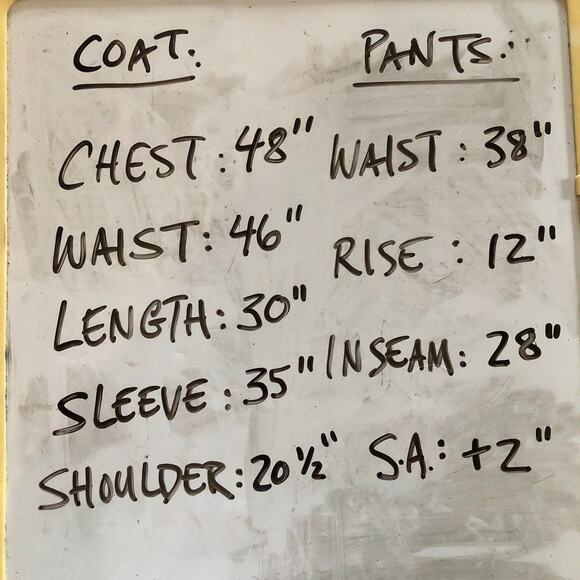 COAT:
CHEST: 48"
WAIST: 46"
LENGTH: 30"
SLEEVE: 35"
SHOULDER: 20 ½"
PANTS:
WAIST: 38"
RISE: 12"
INSEAM: 28"
S.A.: +2"